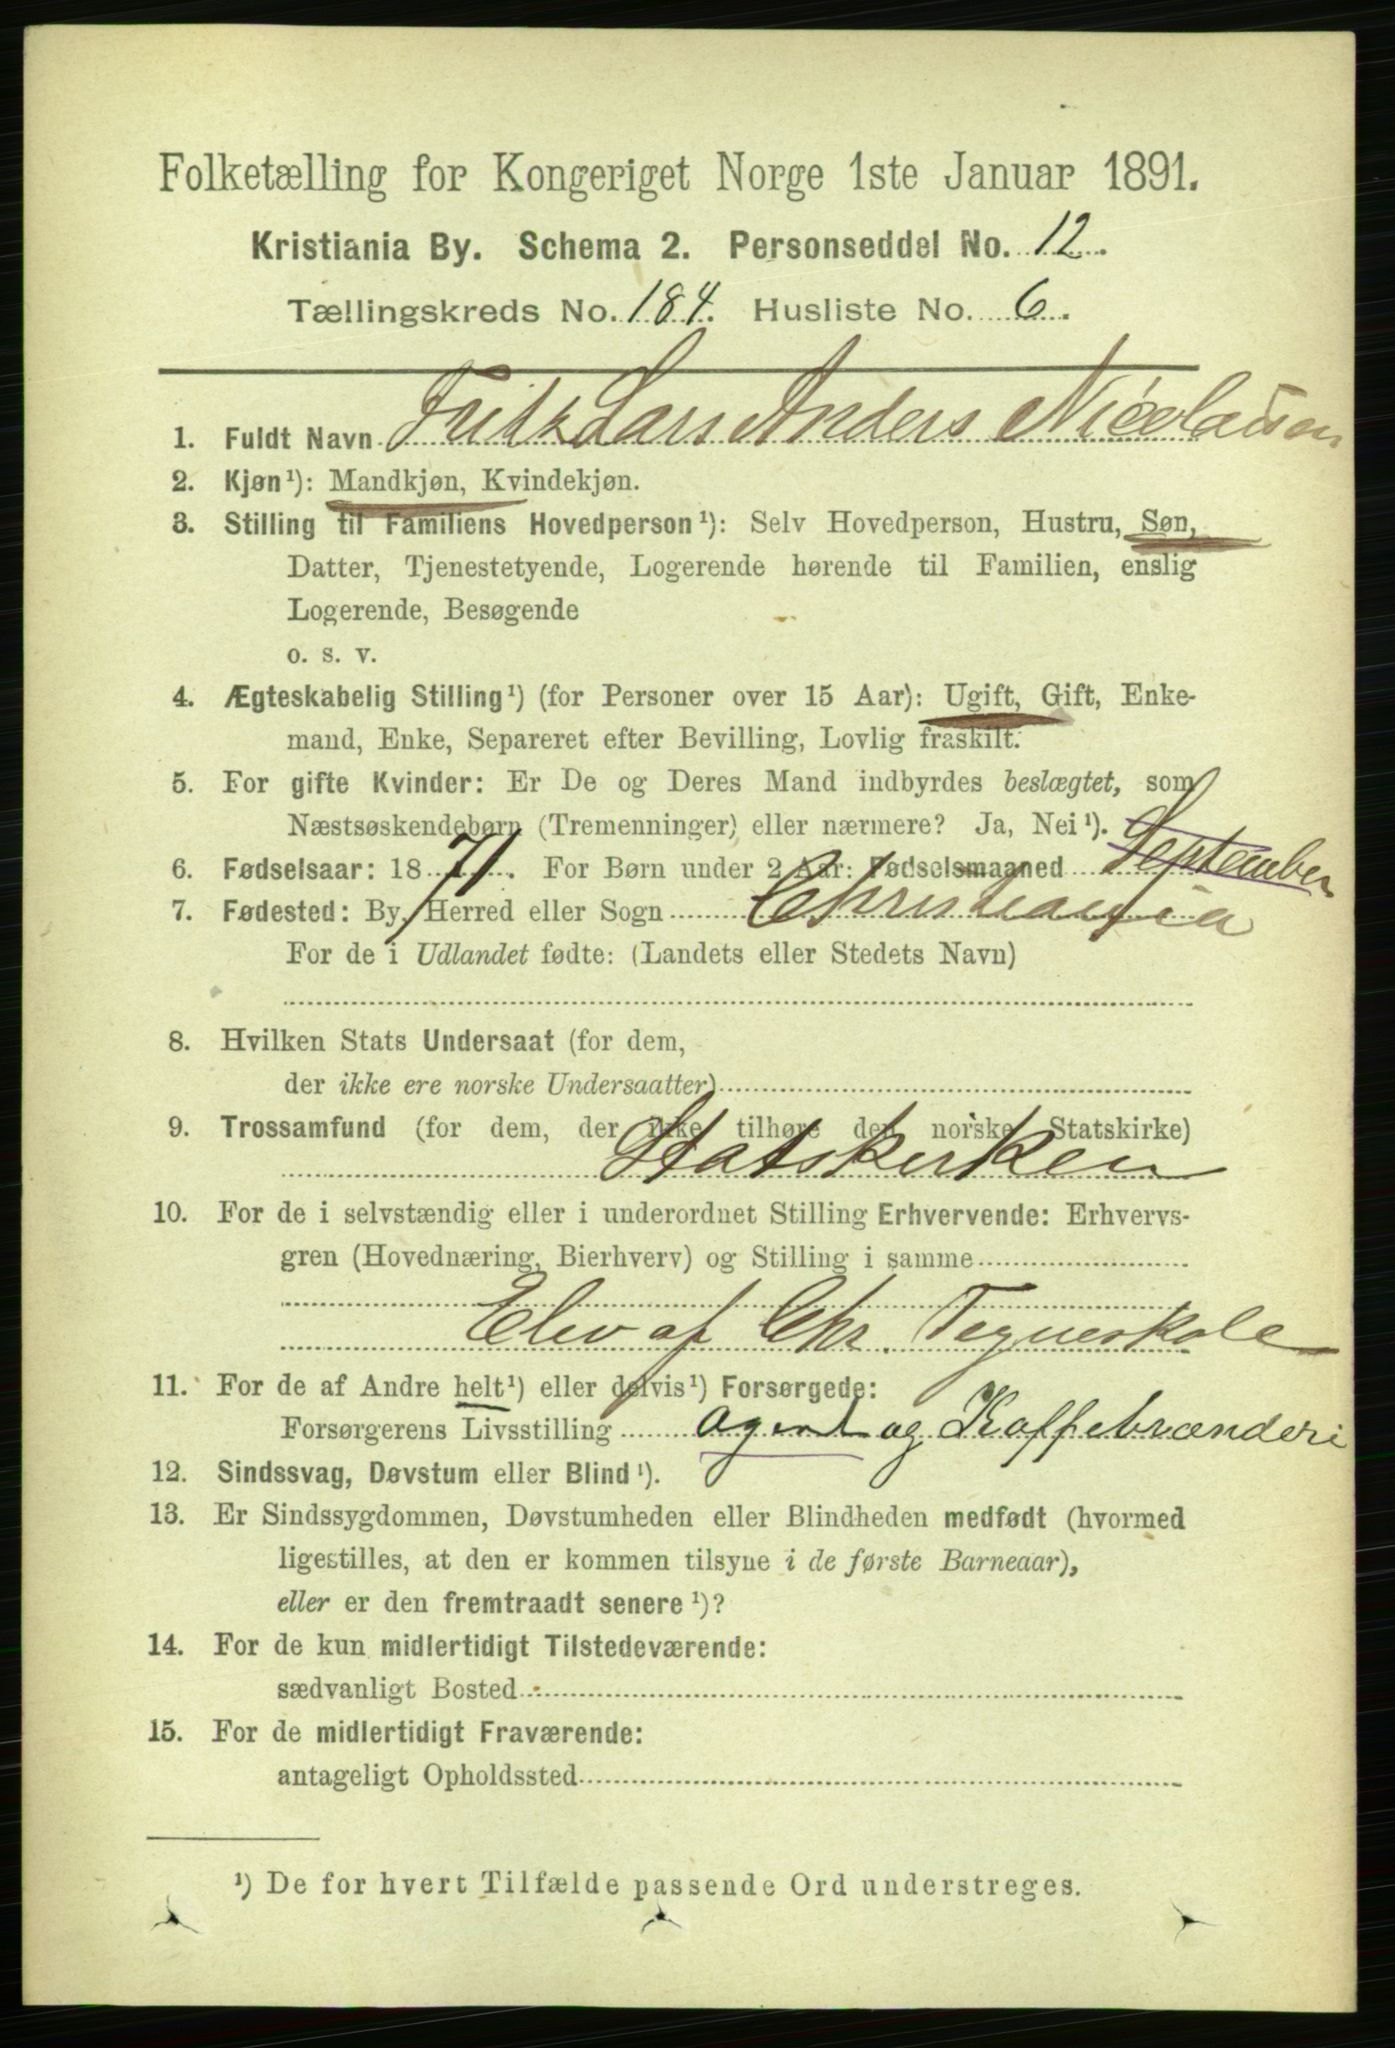 Folketælling for Kongeriget Norge 1ste Januar 1891.
Kristiania By. Schema 2. Personseddel No. 12.
Tællingskreds No. 184. Husliste No. 6.
1. Fuldt Navn Fritz Lars Anders Nicolaisen
2. Kjøn¹): Mandkjøn, Kvindekjøn.
3. Stilling til Familiens Hovedperson¹): Selv Hovedperson, Hustru, Søn,
Datter, Tjenestetyende, Logerende hørende til Familien, enslig
Logerende, Besøgende
o. s. v.
4. Ægteskabelig Stilling¹) (for Personer over 15 Aar): Ugift, Gift, Enke-
mand, Enke, Separeret efter Bevilling, Lovlig fraskilt.
5. For gifte Kvinder: Er De og Deres Mand indbyrdes beslægtet, som
Næstsøskendebørn (Tremenninger) eller nærmere? Ja, Nei¹).
6. Fødselsaar: 1871. For Børn under 2 Aar: Fødselsmaaned September
7. Fødested: By, Herred eller Sogn Christiania
For de i Udlandet fødte: (Landets eller Stedets Navn)
8. Hvilken Stats Undersaat (for dem,
der ikke ere norske Undersaatter)
9. Trossamfund (for dem, der ikke tilhøre den norske Statskirke)
Statskirken
10. For de i selvstændig eller i underordnet Stilling Erhvervende: Erhvervs-
gren (Hovednæring, Bierhverv) og Stilling i samme
Elev af Chr. Tegneskole
11. For de af Andre helt¹) eller delvis¹) Forsørgede:
Forsørgerens Livsstilling Agent og Kaffebrænderi
12. Sindssvag, Døvstum eller Blind¹).
13. Er Sindssygdommen, Døvstumheden eller Blindheden medfødt (hvormed
ligestilles, at den er kommen tilsyne i de første Barneaar),
eller er den fremtraadt senere¹)?
14. For de kun midlertidigt Tilstedeværende:
sædvanligt Bosted
15. For de midlertidigt Fraværende:
antageligt Opholdssted
¹) De for hvert Tilfælde passende Ord understreges.